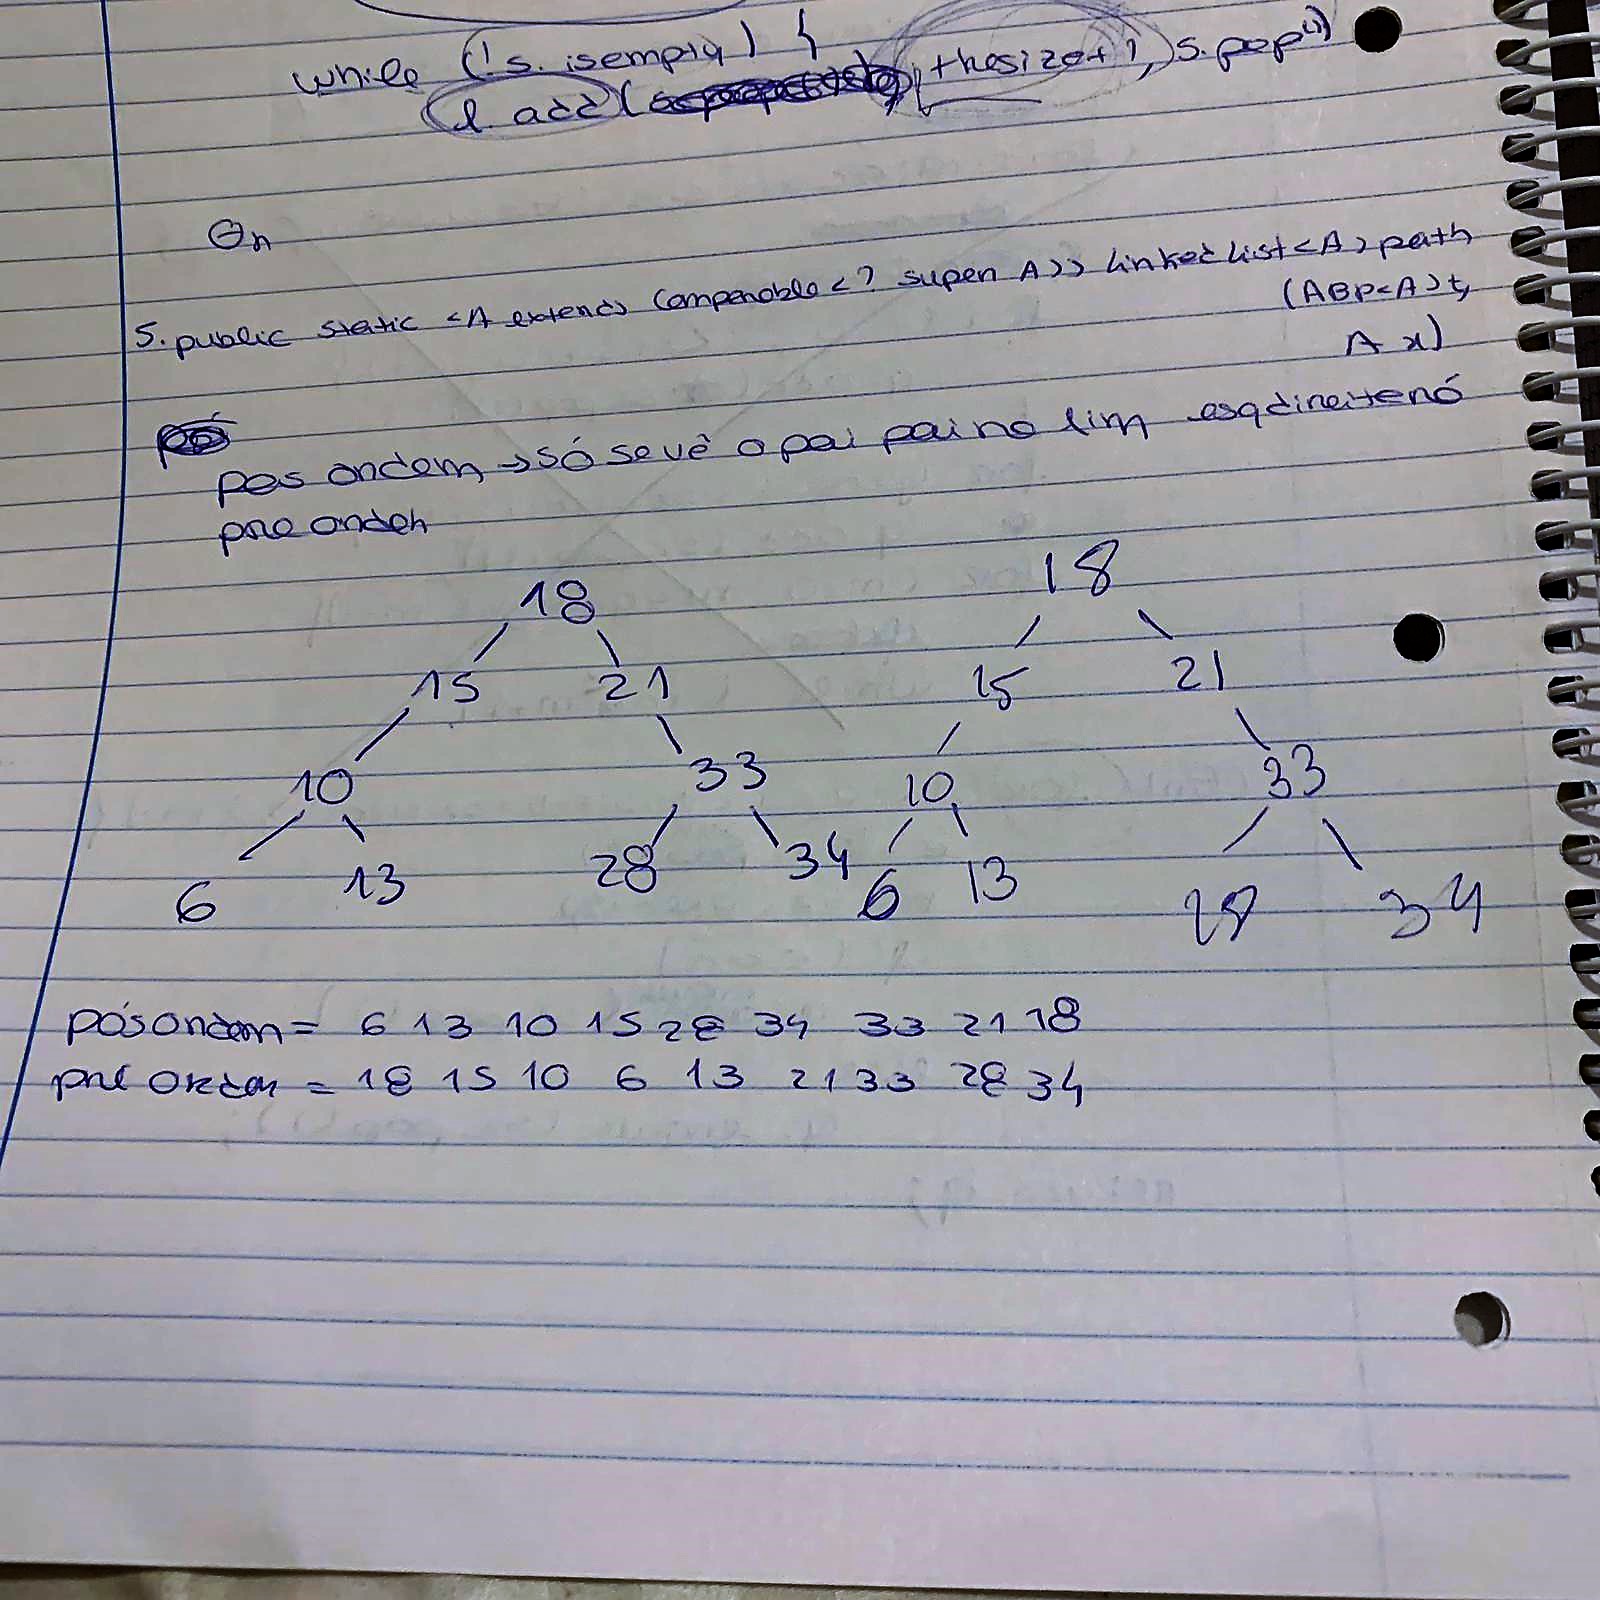 while (!s.isempty) {
l.add( thesize+1, s.pop())
Θn
5. public static <A extends Comparable<? super A>> linkedlist<A> path
(ABP<A> t,
A x)
pos ordem → só se vê o pai pai no fim esq direitenó
pre ordem
18 18
15 21 15 21
10 33 10 33
6 13 28 34 6 13 28 34
pósordem = 6 13 10 15 28 34 33 21 18
pré ordem = 18 15 10 6 13 21 33 28 34